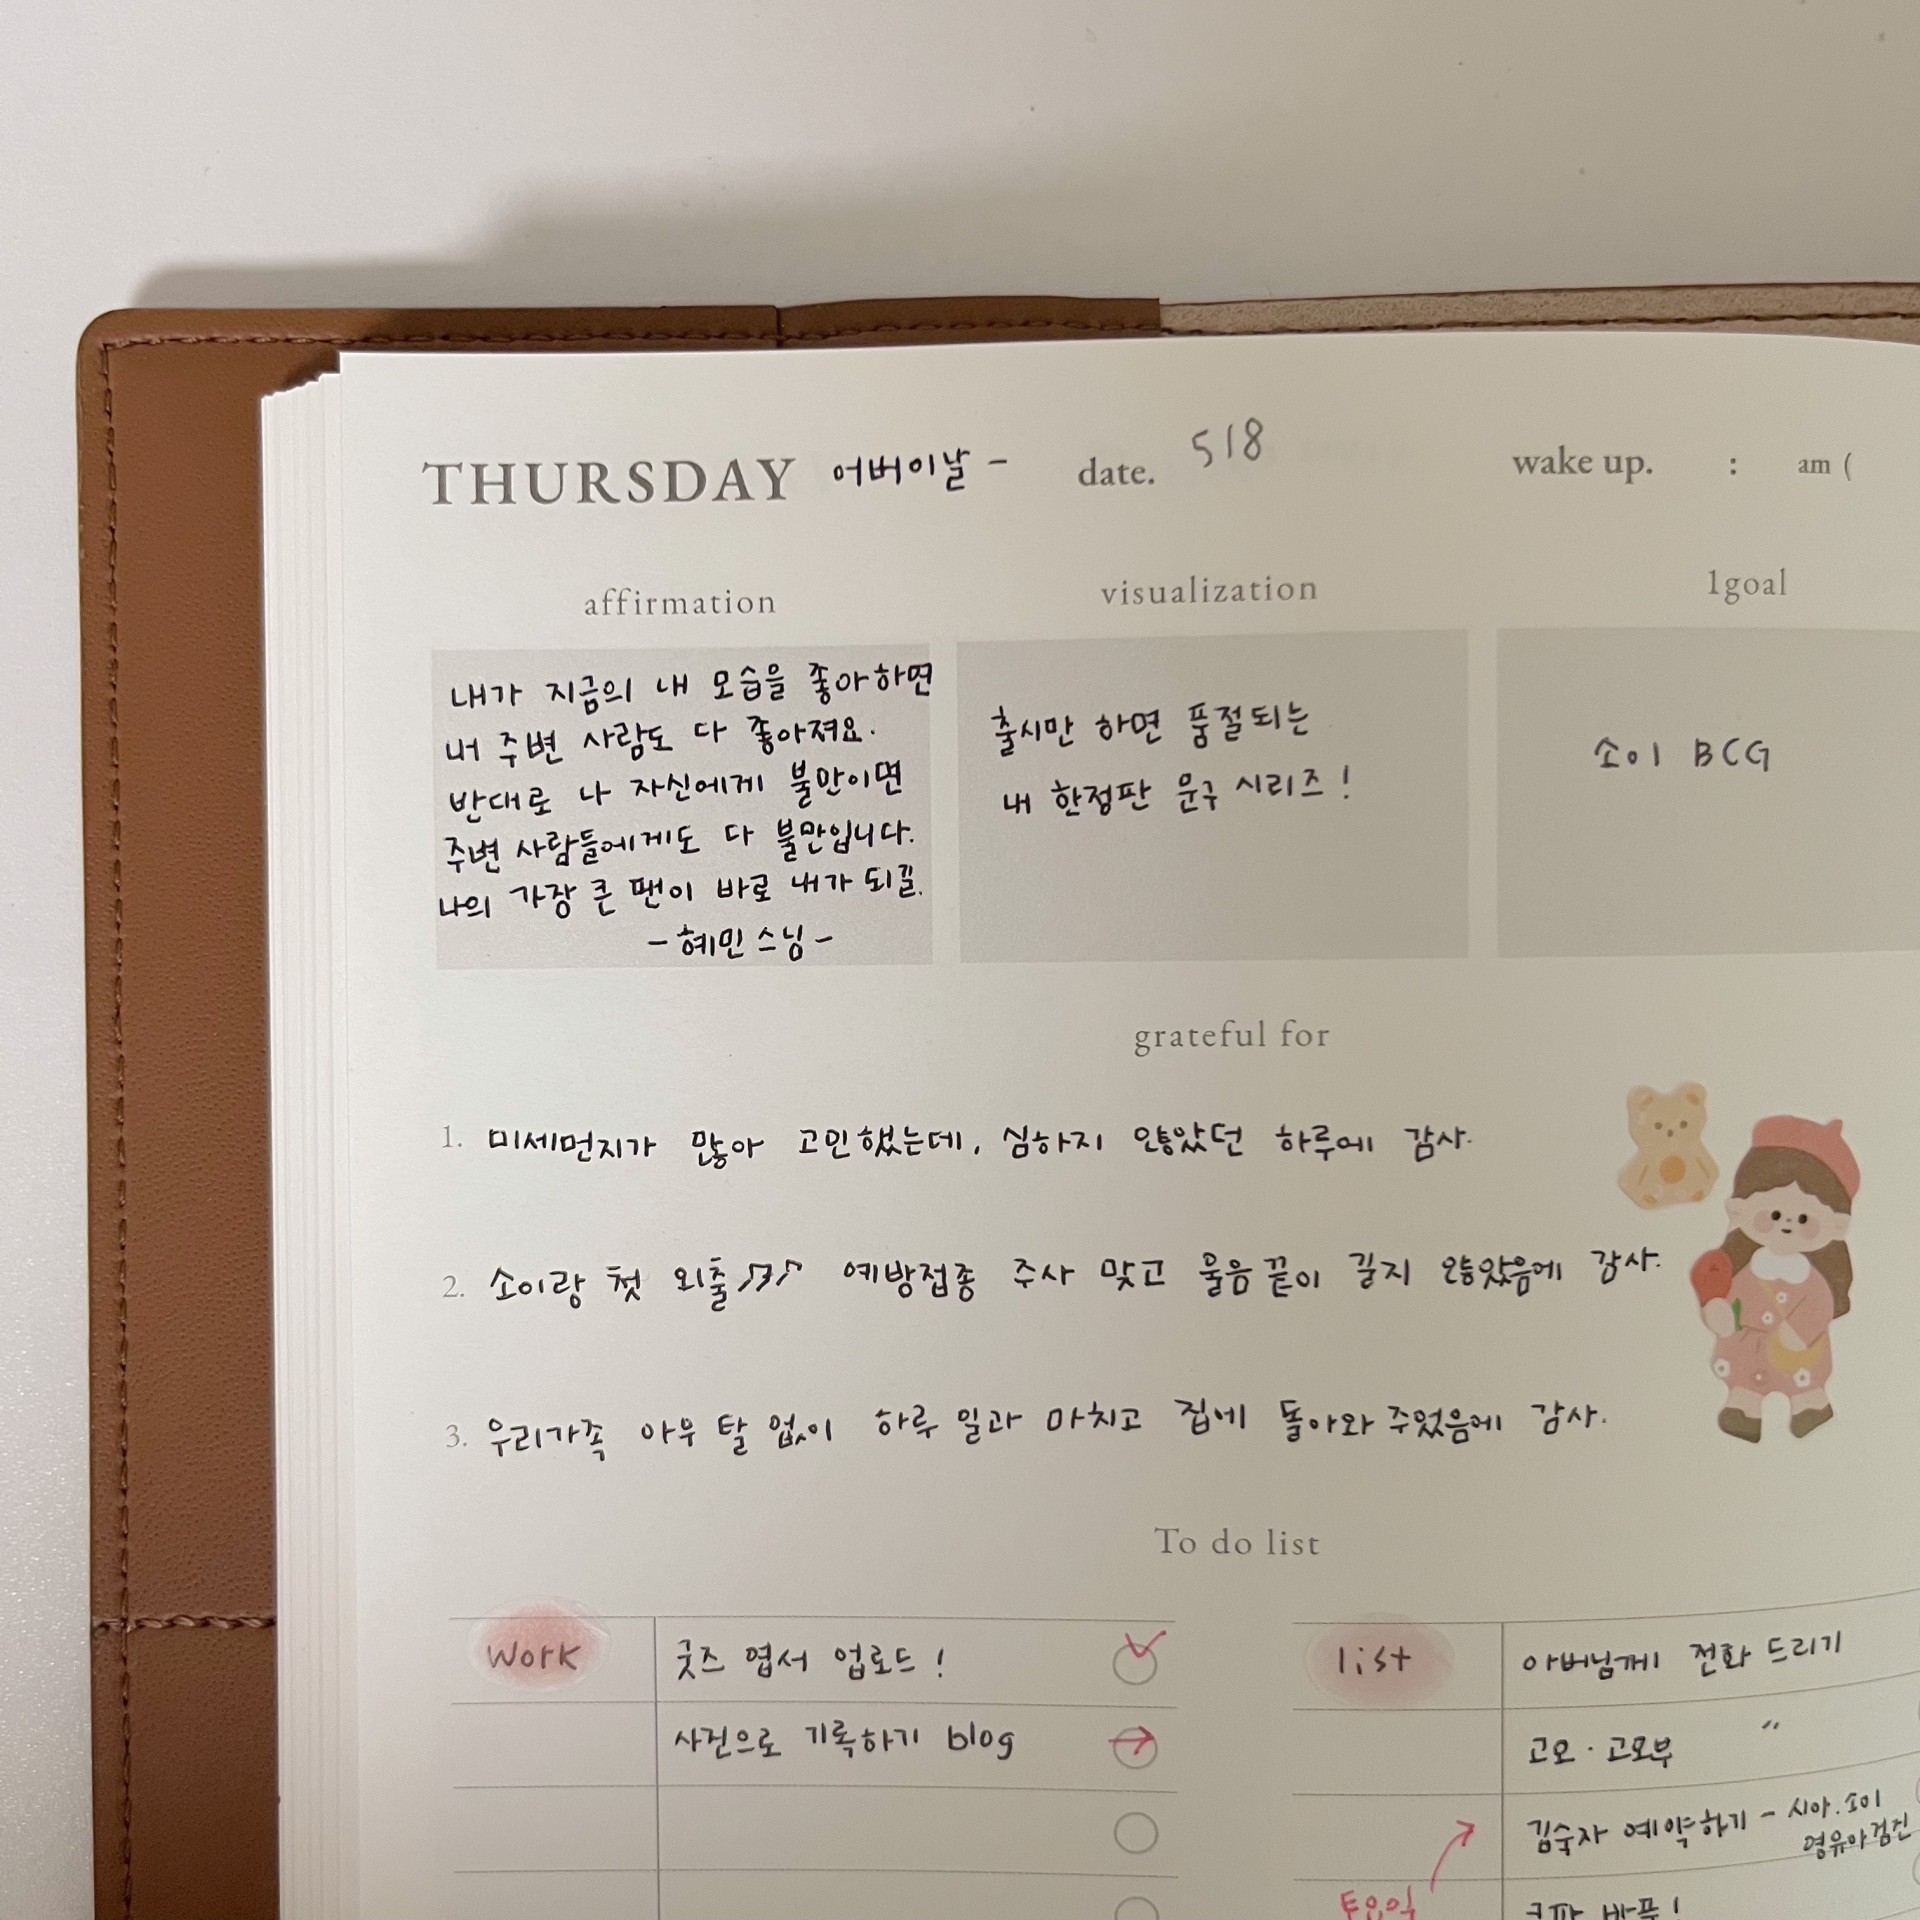 THURSDAY 어버이날 - date. 518 wake up. : am (
affirmation
내가 지금의 내 모습을 좋아하면
내 주변 사람도 다 좋아져요.
반대로 나 자신에게 불만이면
주변 사람들에게도 다 불만입니다.
나의 가장 큰 팬이 바로 내가 되길.
- 혜민 스님 -
visualization
출시만 하면 품절되는
내 한정판 문구 시리즈!
1goal
소이 BCG
grateful for
1. 미세먼지가 많아 고민했는데, 심하지 않았던 하루에 감사.
2. 소이랑 첫 외출♪♪♪ 예방접종 주사 맞고 울음끝이 길지 않았음에 감사.
3. 우리가족 아무 탈 없이 하루 일과 마치고 집에 돌아와 주었음에 감사.
To do list
Work 굿즈 엽서 업로드!
사진으로 기록하기 blog
list 아버님께 전화 드리기
고모·고모부 〃
김숙자 예약하기 - 시아.소이
영유아검진
토요일